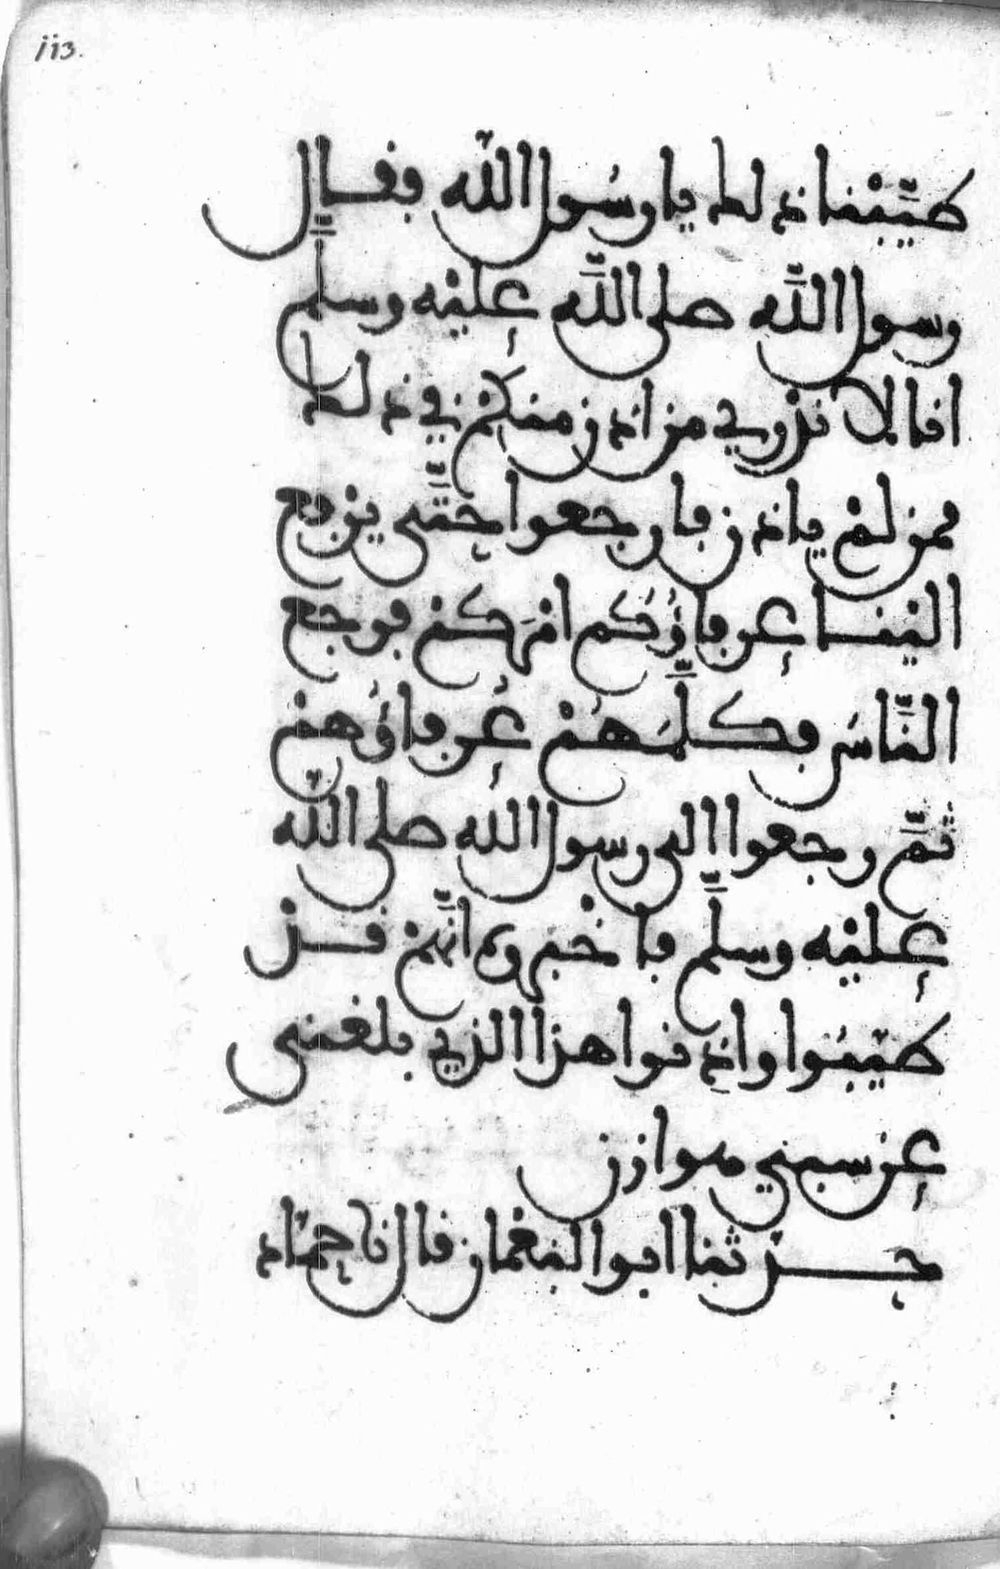 113.
طَيَّبْنا ذلك يا رسُول الله فقال
رسول اللَّه صلى اللَّه عليْه وسلم
انا لا ندْري من اذن منكمْ في ذلك
ممن لمْ ياذن فارجعوا حَتَّى يرْفع
اليْنا عرفاؤُكُم امْرَكم فرجع
النَّاسَ فكلَّمَهُمْ عُرفاؤُهمْ
ثمَّ رجعوا الى رسول الله صلى الله
عليْه وسلَّم فاخْبروه انَّهم قدْ
طيّبُوا واذنوا هذا الذي بلغني
عن سبي هوازن
حدّثنا ابو النعْمان قال نا حمّاد